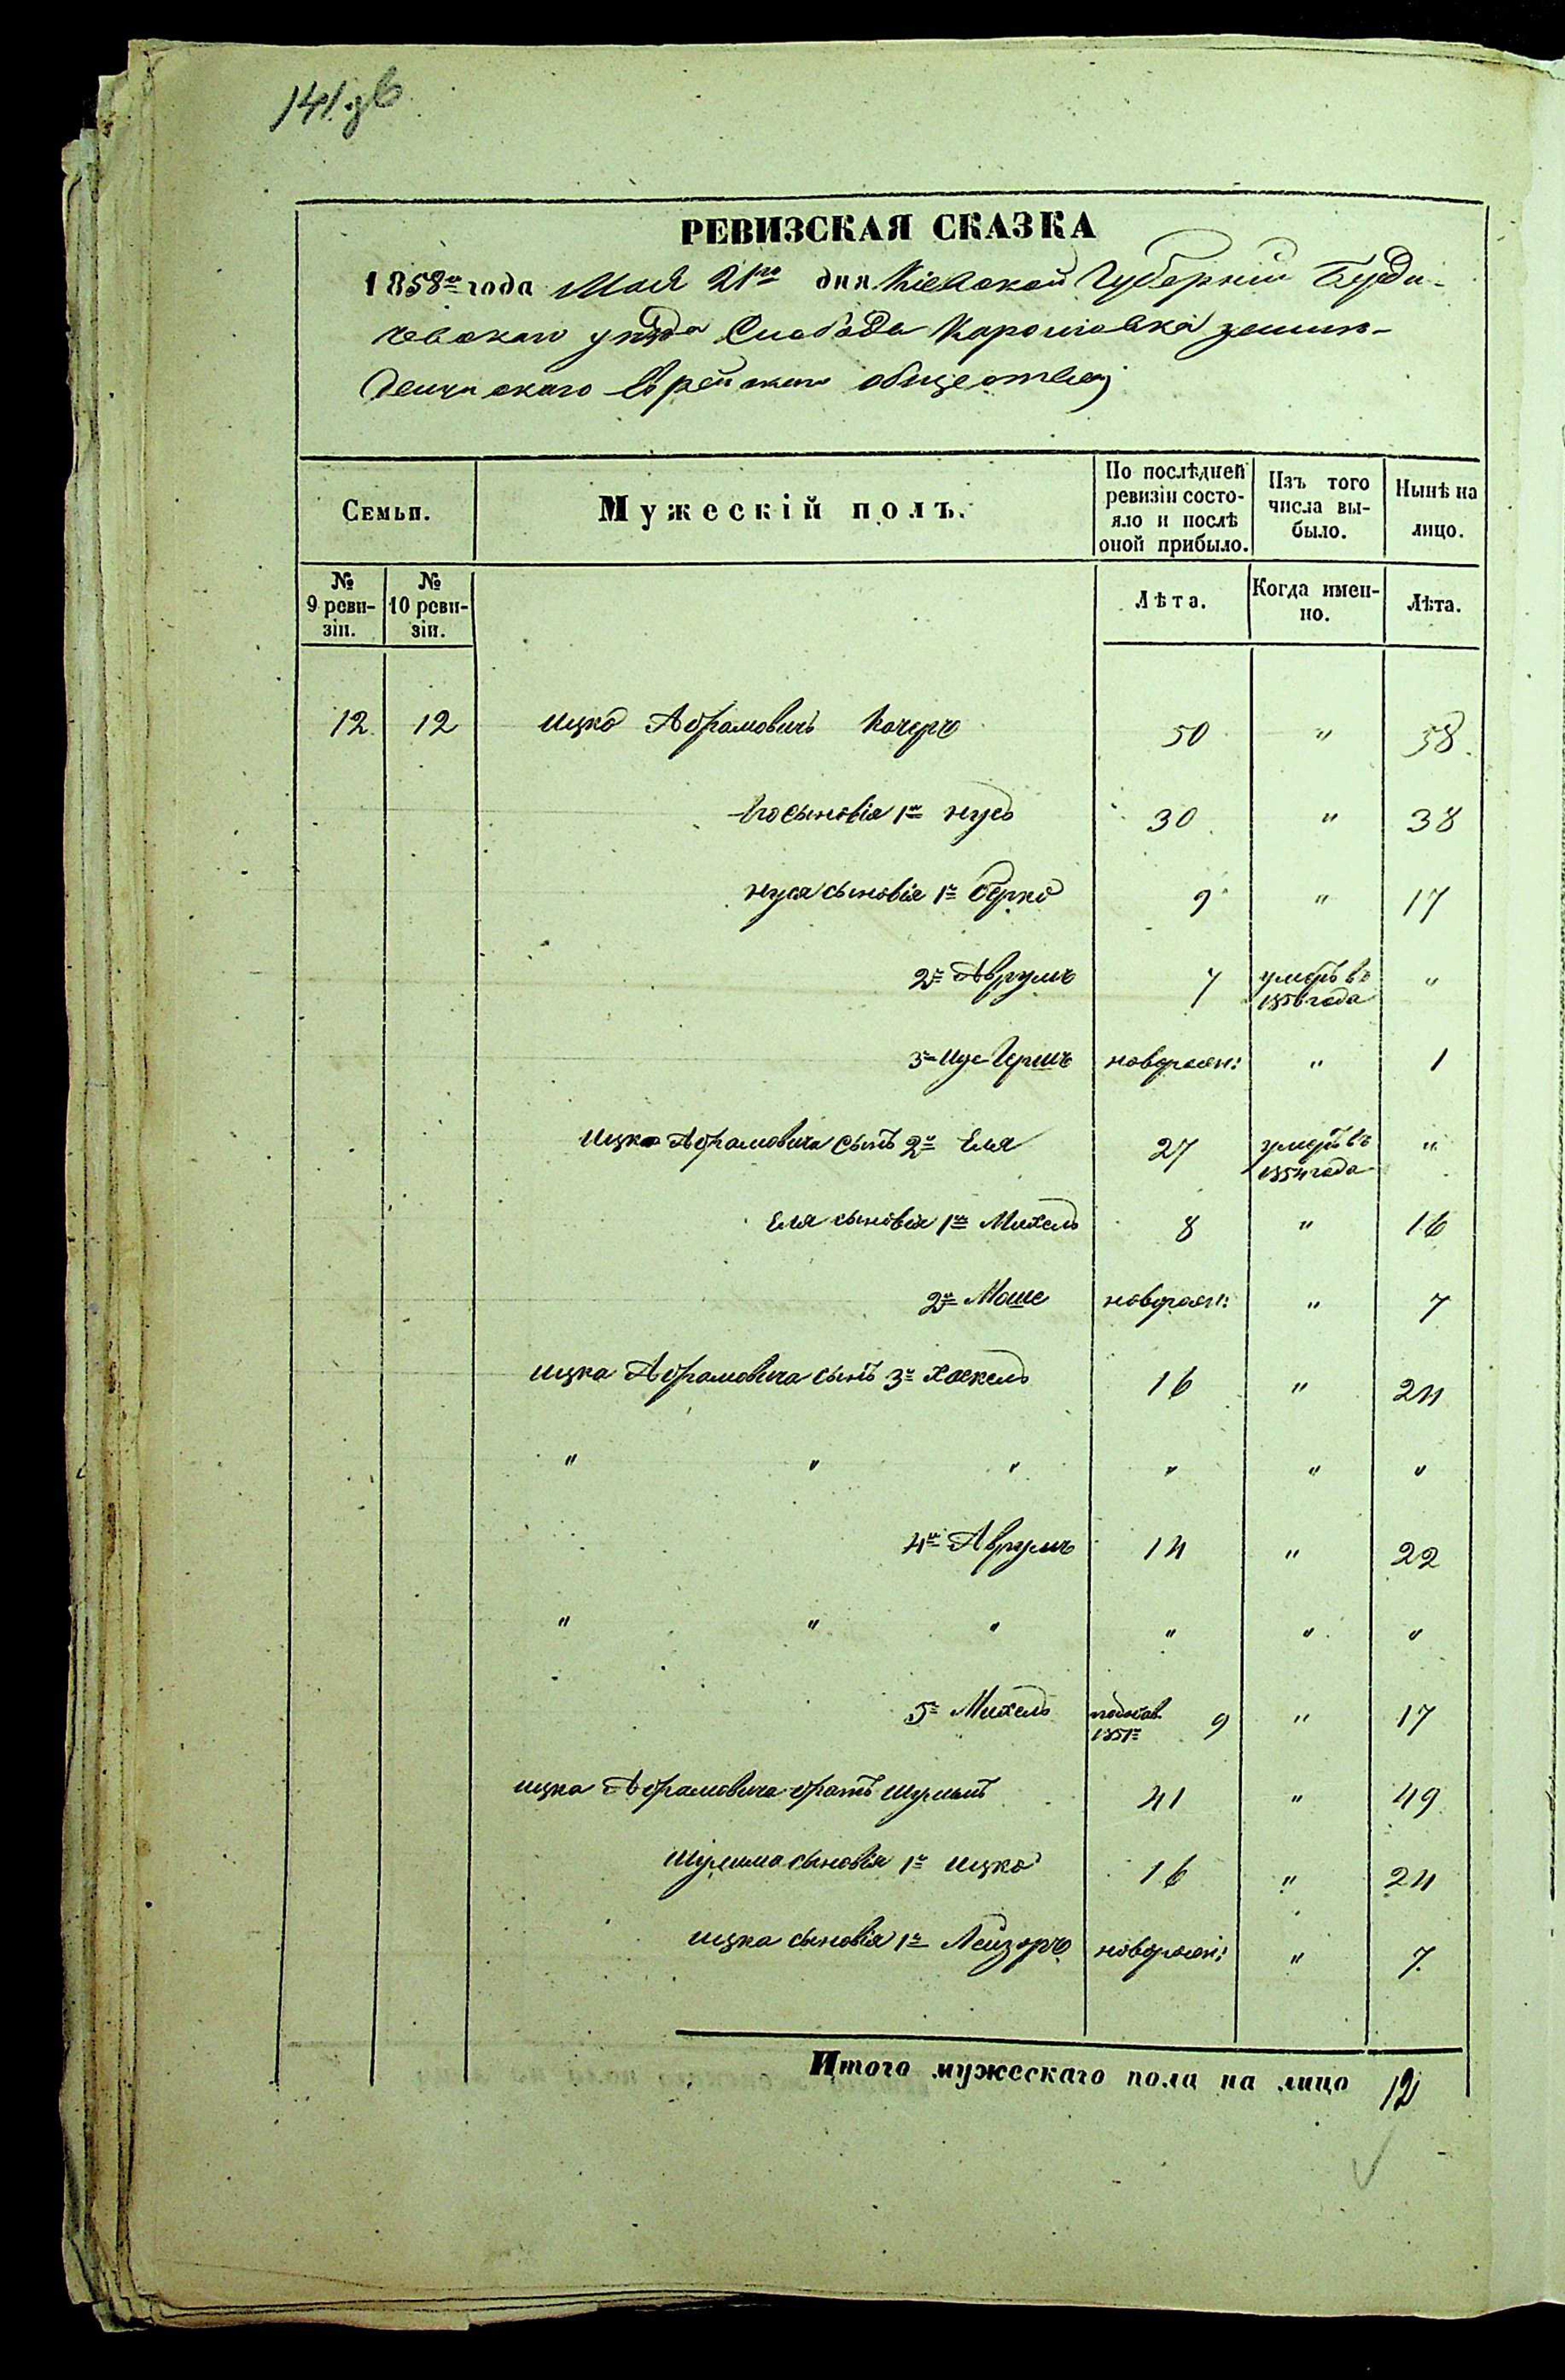 141 зв
РЕВИЗСКАЯ СКАЗКА
1858го года Мая 21го дня Кіевской Губерніи Берди-
чевскаго уѣзда Слобода Карошовка
Еврейскаго общества
Семьи.
Мужескій полъ.
По послѣдней ревизіи состо-яло и послѣ оной прибыло.
Изъ того числа вы-было.
Нынѣ на лицо.
№ 9 реви-зіи.
№ 10 реви-зіи.
Лѣта.
Когда имен-но.
Лѣта.
12 12 Ицко Абрамовичъ Качеръ 50 " 58
Его сыновія 1й Нусь 30 " 38
Нуся сыновія 1й Берко 9 " 17
2й Аврумъ 7 умеръ въ 1856 года "
3й Гершъ новорожн: " 1
Ицка Абрамовича сынъ 2й Еля 27 умеръ въ 1854 года "
Еля сыновія 1й Михель 8 " 16
2й Моше новорожн: " 7
Ицка Абрамовича сынъ 3й Хаскель 16 " 24
" " " " " "
4й Аврумъ 14 " 22
" " " " " "
5й Михель 1851 9 " 17
Ицка Абрамовича братъ Шулимъ 41 " 49
Шулима сыновія 1й Ицко 16 " 24
Ицка сыновія 1й Лейзоръ новорожн: " 7
Итого мужескаго пола на лицо 12